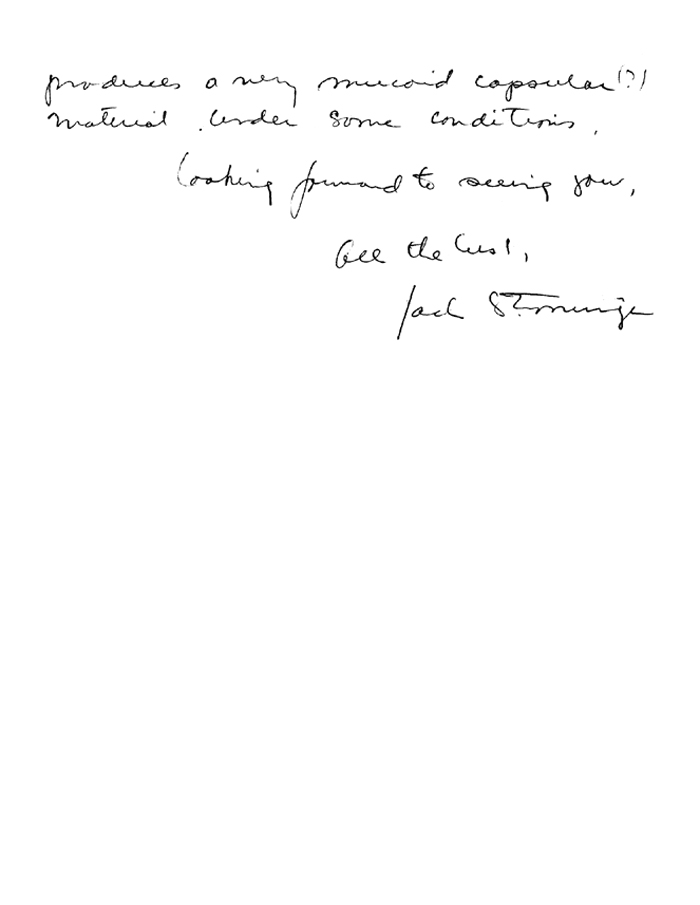 produces a very mucoid capsular (?)
material under some conditions.
Looking forward to seeing you,
All the best,
Jack Strominger